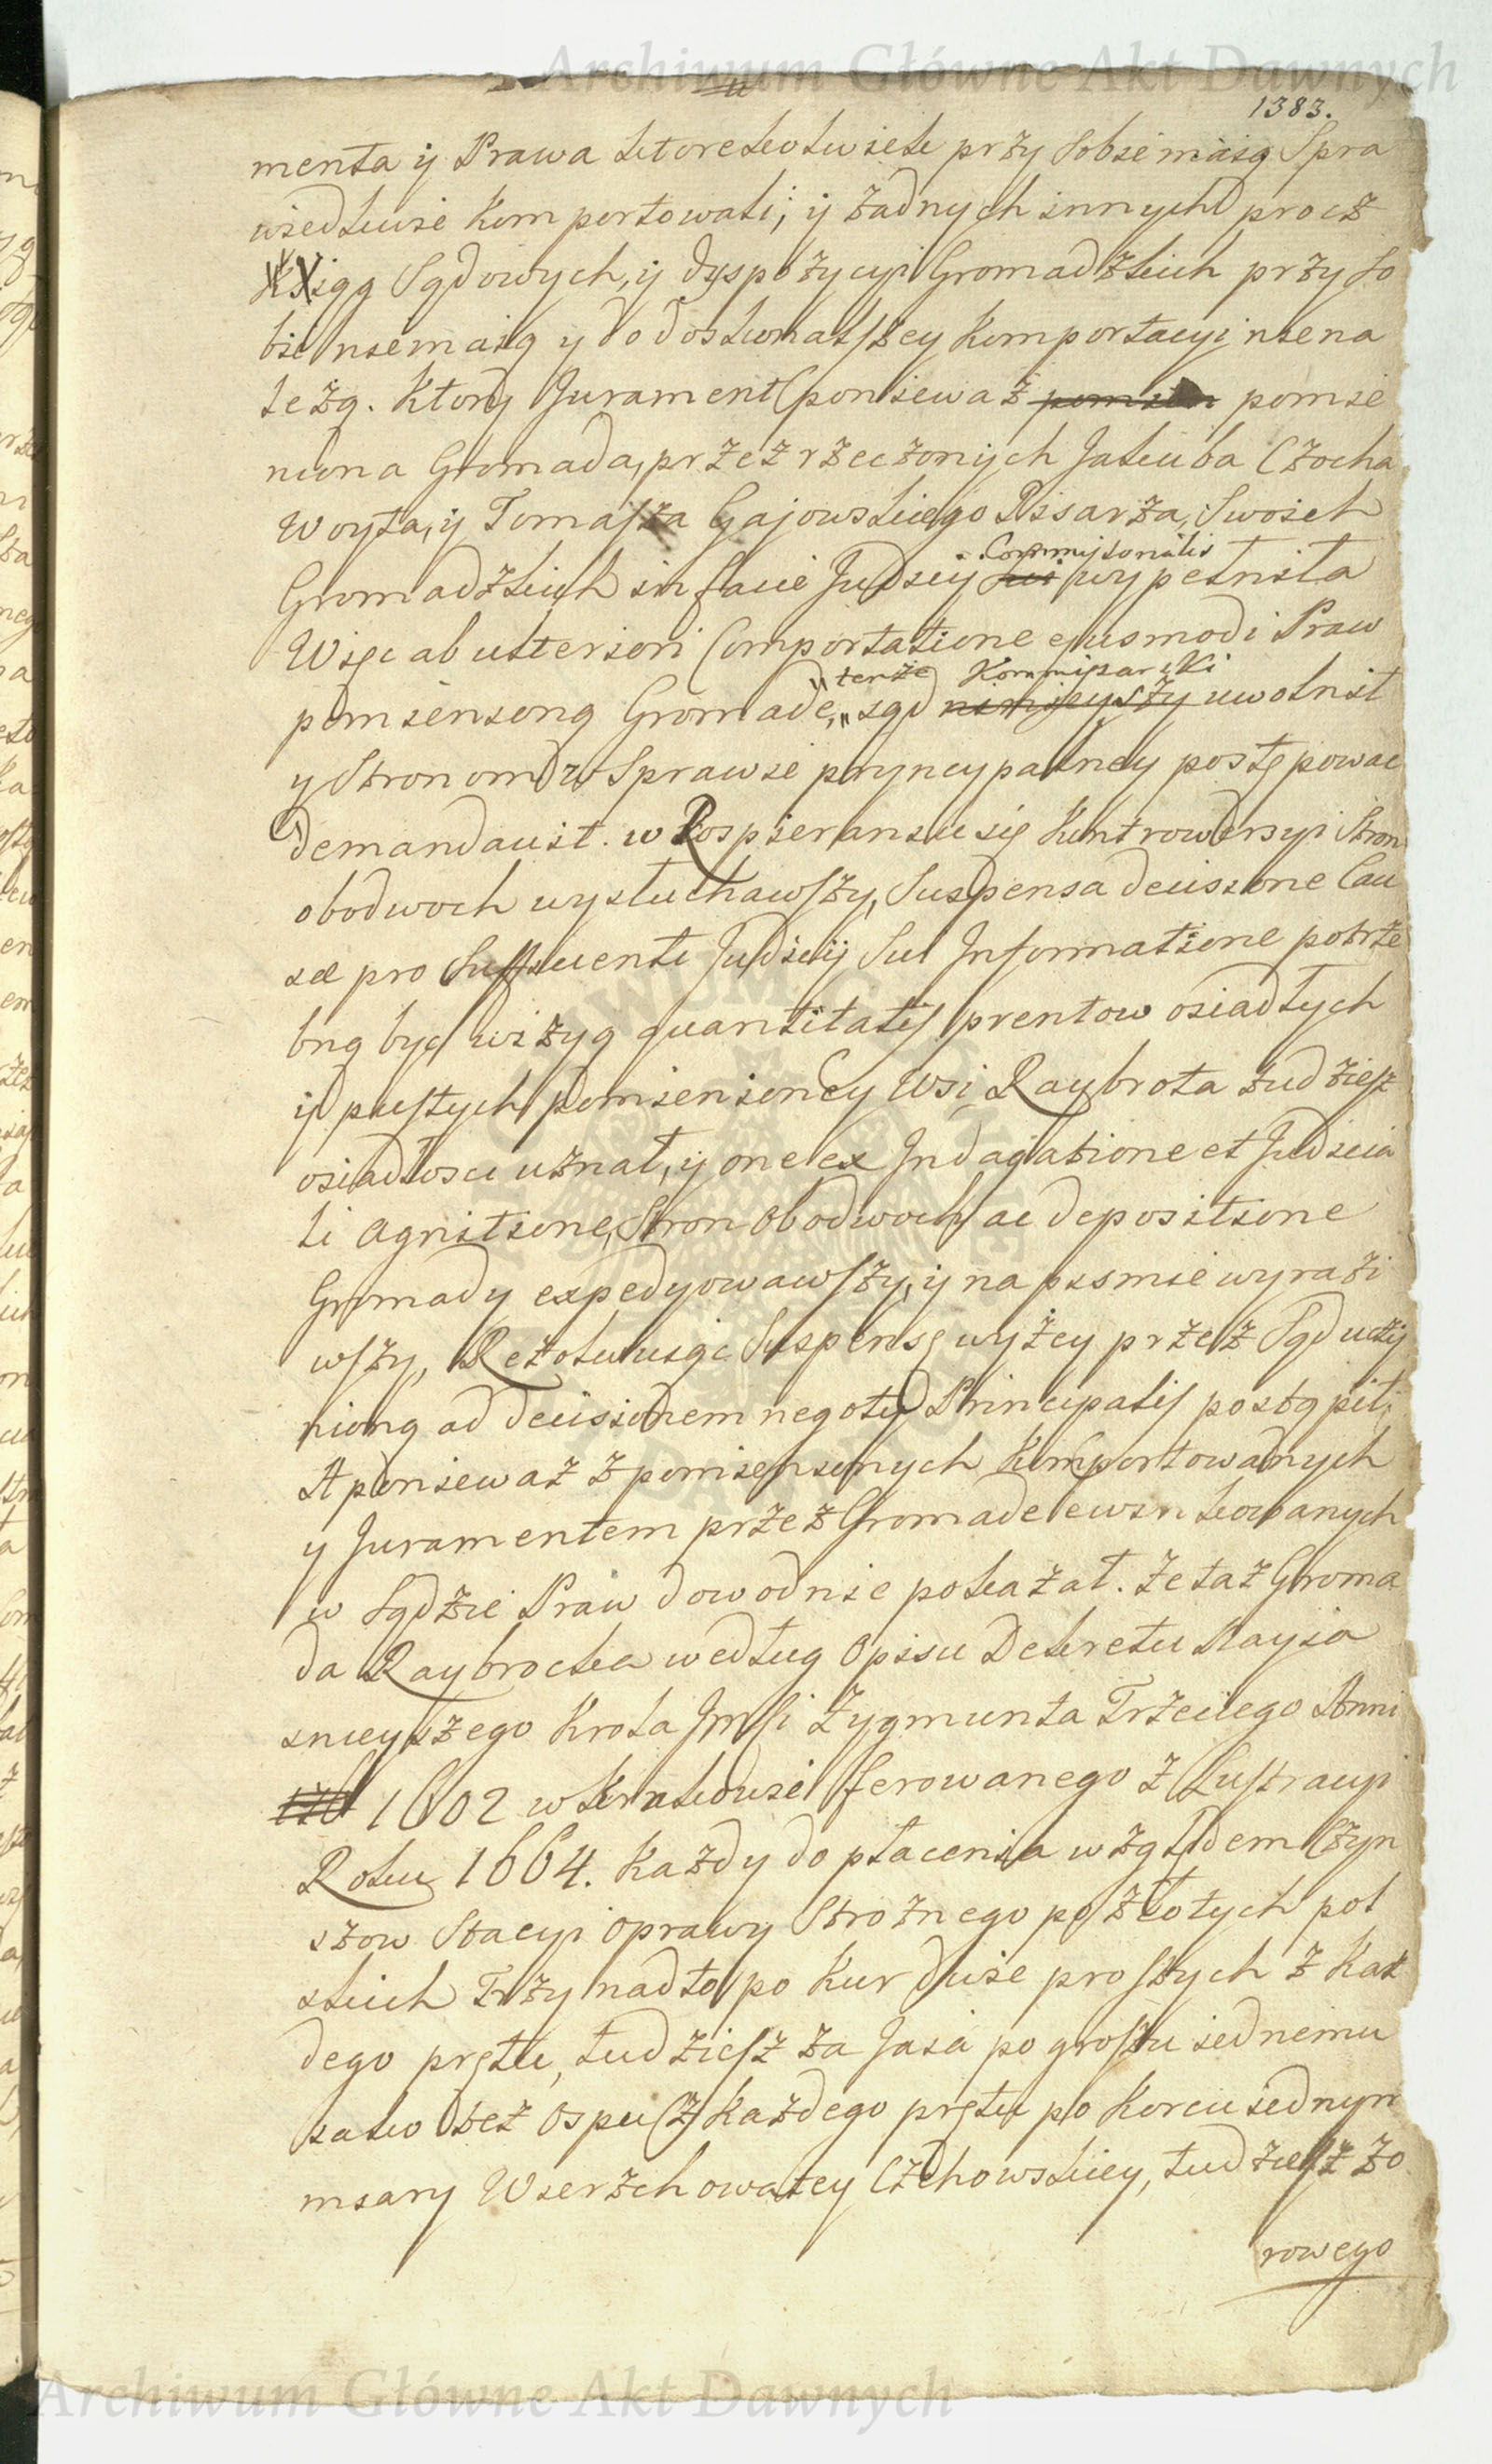 Archiwum Główne Akt Dawnych
1383.
menta ÿ Prawa ktorekolwiek przy sobie maią Spra
wiedliwie Komportowali; ÿ żadnych innych procz
Xsiąg Sądowych, ÿ dyspozycyi Gromadzkich przy so
bie niemaią y do doskonalszey Komportacyi niena
leżą. Ktory Jurament poniewaz pomie
niona Gromada, przez rzeczonÿch Jakuba Czocha
Woyta, ÿ Tomasza Gajowskiego Pisarza, Swoich
Gromadzkich in facie Judicÿ Commissorialis wypełniła
Więc ab ulteriori Comportatione ejusmodi Praw
pomienioną Gromadę, tenże sąd Kommissarski uwolnił
y Stronom w Sprawie pryncypalney postępowac
demandavit. w Rospieraniu się Kontrowersyi Stron
obodwoch wysłuchawszy, Suspensa decisione Cau
sæ pro Sufficienti Judicÿ Sui Informatione potrze
bną być wizyą quantitatis prentow osiadłych
ÿ pustych pomienioney Wsi Raybrota tudziesz
osiadłosci uznał, ÿ one ex Indagatione et Judicia
li Agnitione, Stron Obodwoch ac depositione
Gromady expedyowawszy, ÿ na pismie wyrazi
wszy, Rezolwuiąc Suspensę wyżey przez Sąd uczÿ
nioną ad decisionem negotÿ Principalis postąpił;
A poniewaz z pomienionych Komportowanych
y Juramentem przez Gromadę ewinkowanych
w Sądzie Praw dowodnie pokazał. że taż Groma
da Raybrocka według Opisu Dekretu Nayia
snieyszego Krola Jmsi Zygmunta Trzeciego Anni
1602 w Krakowie ferowanego z Lustracyi
Roku 1664. Każdy do płacenia względem Czyn
szow Stacyi oprawy Strożnego po złotych pol
skich Trzy nadto po Kur dwie prostych z Każ
dego prętu, tudziesz za Jaia po groszu iednemu
iako też Ospu z Każdego prętu po Korcu iednym
miary Wierzchowatey Czchowskiey, tudziesz żo
rowego
Archiwum Główne Akt Dawnych